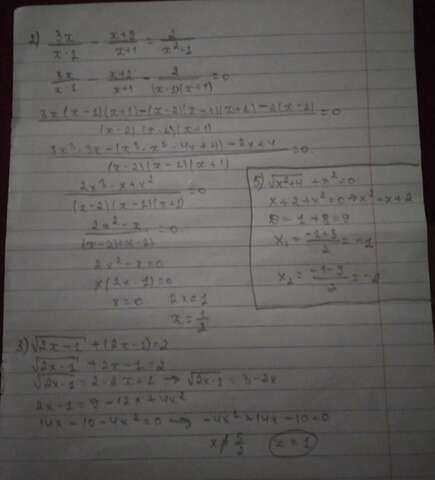 2) \frac{3x}{x-2} - \frac{x+2}{x+1} = \frac{2}{x^2-1}
\frac{3x}{x-2} - \frac{x+2}{x+1} - \frac{2}{(x-1)(x+1)} = 0
\frac{3x(x-1)(x+1)-(x-2)(x-1)(x+2)-2(x-2)}{(x-2)(x-1)(x+1)} = 0
\frac{3x^3-3x-(x^3-x^2-4x+4)-2x+4}{(x-2)(x-1)(x+1)} = 0
\frac{2x^3-x+x^2}{(x-2)(x-1)(x+1)} = 0
\frac{2x^2-x}{(x-2)(x-1)} = 0
2x^2-x=0
x(2x-1)=0
x=0 2x=1
x=\frac{1}{2}
5) \sqrt{x^2+4} + x^2=0
x+2+x^2=0 → x^2=x+2
D=1+8=9
x_1=\frac{-1+3}{2}=-1
x_2=\frac{-1-3}{2}=-2
3) \sqrt{2x-1} + (2x-1)=2
\sqrt{2x-1} + 2x-1=2
\sqrt{2x-1}=2-2x+1 → \sqrt{2x-1}=3-2x
2x-1=9-12x+4x^2
14x-10-4x^2=0 → -4x^2+14x-10=0
x≠\frac{5}{2} x=1